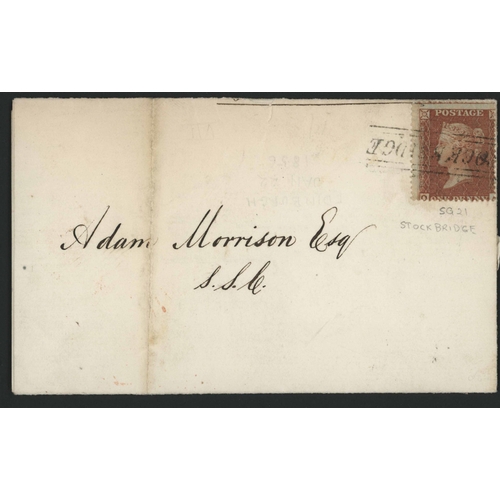 POSTAGE
SG 21
STOCKBRIDGE
Adam Morrison Esq
S.S.C.